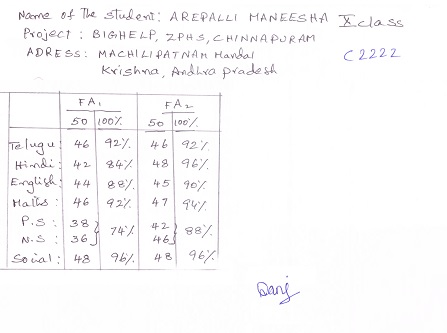 Name of the student: AREPALLI MANEESHA X class
Project: BIGHELP, ZPHS, CHINNAPURAM
ADRESS: MACHILIPATNAM Mandal C2222
Krishna, Andhra pradesh
FA1 FA2
50 100% 50 100%
Telugu: 46 92% 46 92%
Hindi: 42 84% 48 96%
English: 44 88% 45 90%
Maths: 46 92% 47 94%
P.S: 38 74% 42 88%
N.S: 36 46
Social: 48 96% 48 96%